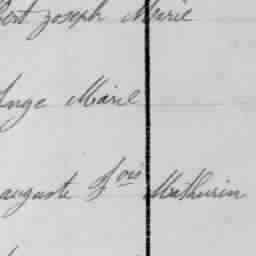 bert Joseph Marie
Ange Marie
auguste fois Mathurin